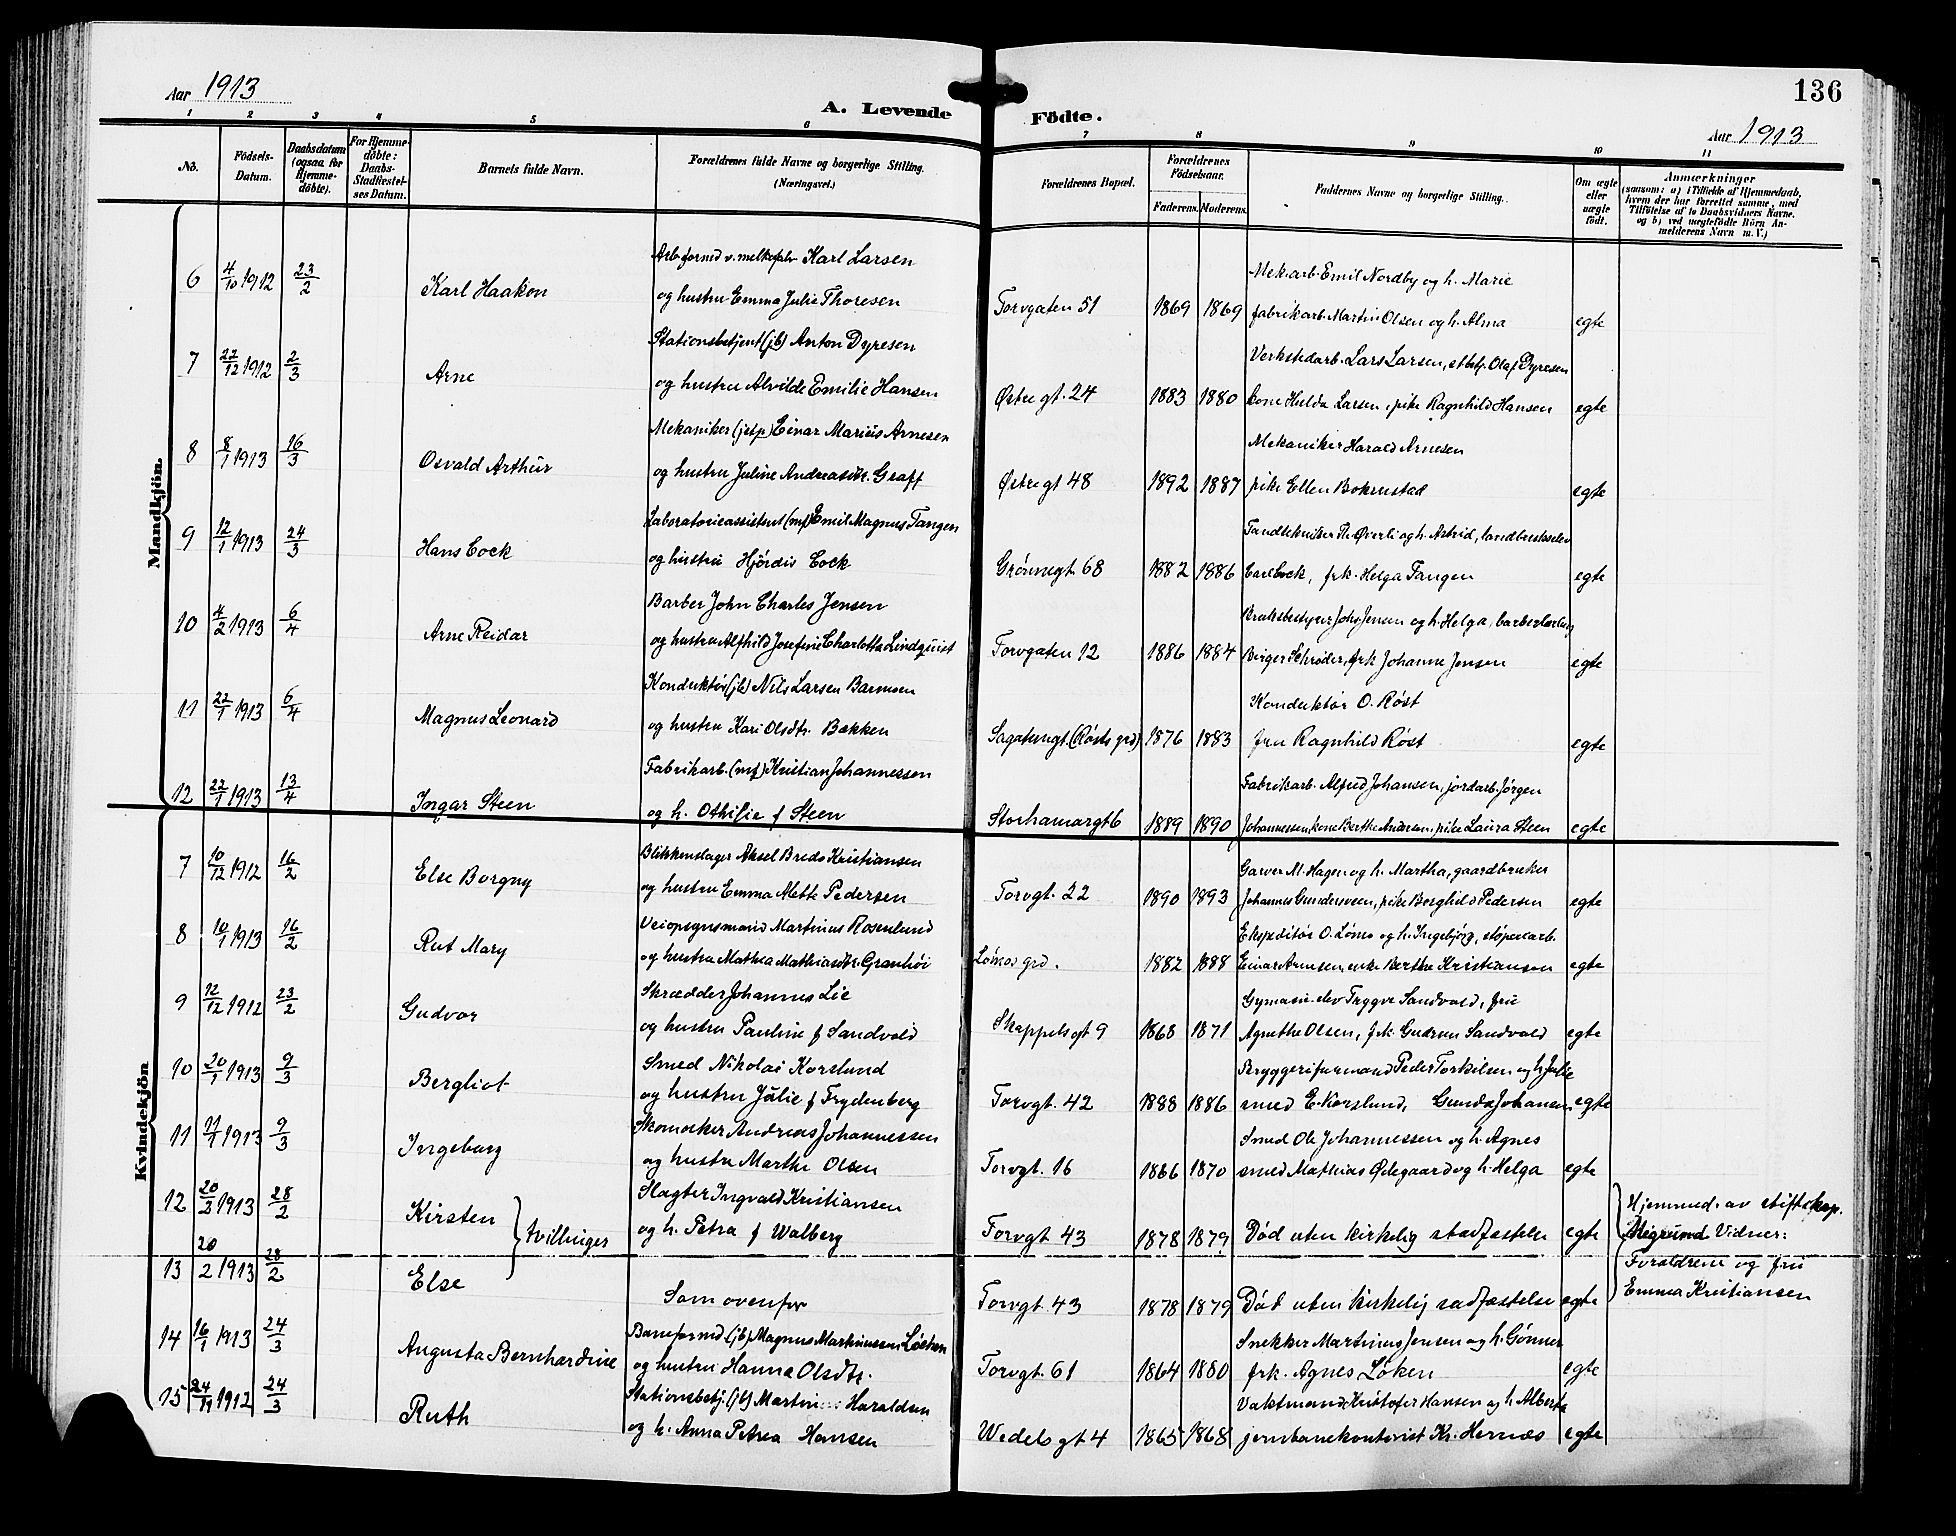 Aar 1913
A. Levende Födte.
136
Aar 1913
1 2 3 4 5 6 7 8 9 10 11
No.
Födsels-Datum.
Daabsdatum (ogsaa for Hjemmedöbte).
For Hjemmedöbte: Daabs-Stadfæstelses Datum.
Barnets fulde Navn.
Forældrenes fulde Navne og borgerlige Stilling. (Næringsvei.)
Forældrenes Bopæl.
Forældrenes Födselsaar.
Faderens. Moderens.
Faddernes Navne og borgerlige Stilling.
Om ægte eller uægte födt.
Anmærkninger
(saasom: a) i Tilfælde af Hjemmedaab,
hvem der har forrettet samme, med
Tilföielse af to Daabsvidners Navne.
og b) ved uægtefödte Börn Anmelderens Navn m. V.)
Mandkjön.
6 4/10 1912 23/2 Karl Haakon Arb.formd v. melkefabr Karl Larsen
og hustru Emma Julie Thoresen Torvgaten 51 1869 1869 Mek.arb. Emil Nordby og h. Marie
fabrikarb. Martin Olsen og h. Alma egte
7 22/12 1912 2/3 Arne Stationsbetjent (jb) Anton Dyresen
og hustru Alvilde Emilie Hansen Østre gt. 24 1883 1880 Verkstedarb. Lars Larsen, st.betj. Olaf Dyresen
kone Hulda Larsen, pike Ragnhild Hansen egte
8 8/1 1913 16/3 Osvald Arthur Mekaniker (jstp) Einar Marius Arnesen
og hustru Juline Andreasdtr. Graff Østregt 48 1892 1887 Mekaniker Harald Arnesen
pike Ellen Bokrustad egte
9 12/1 1913 24/3 Hans Cock Laboratorieassistent (mf) Emil Magnus Tangen
og hustru Hjördis Cock Grønnegt. 68 1882 1886 Tandtekniker Th. Øverli og h. Astrid, landbrukselev
Carl Cock, frk. Helga Tangen egte
10 4/2 1913 6/4 Arne Reidar Barber John Charles Jensen
og hustru Alfhild Josefine Charlotta Lindquist Torvgaten 12 1886 1884 Bruksbestyrer Johs Jensen og h. Helga, barberlærling
Birger Schrøder, frk Johanne Jensen egte
11 22/1 1913 6/4 Magnus Leonard Konduktör (jb) Nils Larsen Barmsen
og hustru Kari Olsdtr. Bækken Sagatungt. (Røsts grd) 1876 1883 Konduktör O. Røst
fru Ragnhild Røst egte
12 22/1 1913 13/4 Ingar Steen Fabrikarb. (mf) Kristian Johannessen
og h. Othilie f Steen Storhamargt 6 1889 1890 Fabrikarb. Alfred Johansen, jordarb. Jørgen
Johannessen kone Berthe Andersen, pike Laura Steen egte
Kvindekjön
7 10/12 1912 16/2 Else Borgny Blikkenslager Aksel Bredo Kristiansen
og hustru Emma Mette Pedersen Torvgt. 22 1890 1893 Garver M. Hagen og h. Martha, gaardbruker
Johannes Gundersveen, pike Borghild Pedersen egte
8 10/1 1913 16/2 Rut Mary Veiopsynsmand Martinius Rosenlund
og hustru Mathea Mathiasdtr. Granhöi Lömos grd. 1882 1888 Ekspeditør O. Lömo og h. Ingebjörg, støperiarb.
Einar Arnesen, enke Berthe Kristiansen egte
9 12/12 1912 23/2 Gudvor Skrædder Johannes Lie
og hustru Pauline f Sandvold Skappels gt 9 1868 1871 Gymasie-elev Trygve Sandvold, fru
Agnethe Olsen, frk. Gudrun Sandvold egte
10 20/1 1913 9/3 Bergliot Smed Nikolai Korslund
og hustru Julie f Frydenberg Torvgt. 42 1888 1886 Bryggeriformand Peder Torkilsen og h. Julie
smed E. Korslund, Gunda Johansen egte
11 11/1 1913 9/3 Ingeborg Skomaker Andreas Johannessen
og hustru Marthe Olsen Torvgt. 16 1866 1870 Smed Ole Johannessen og h. Agnes
smed Mathias Ødegaard og h. Helga egte
12 20/2 1913 28/2 Kirsten tvillinger Slagter Ingvald Kristiansen
og h. Petra f Walberg Torvgt 43 1878 1879 Død uten kirkelig stadfæstelse egte Hjemmed. av stiftskap.
Vidner:
Forældrene og fru
Emma Kristiansen
13 20/2 1913 28/2 Else Som ovenfor Torvgt. 43 1878 1879 Död uten kirkelig sadfæstelse egte
14 16/1 1913 24/3 Augusta Bernhardine Baneformd (jb) Magnus Markussen Løken
og hustru Hanna Olsdtr. Torvgt. 61 1864 1880 Snekker Martinius Jensen og h. Gønner
frk. Agnes Løken egte
15 24/11 1912 24/3 Ruth Stationsbetj. (jb) Martin Haraldsen
og h. Anna Petrea Hansen Wedels gt 4 1865 1868 Vaktmand Kristofer Hansen og h. Alberta
jernbanekontorist Kr. Hernæs egte